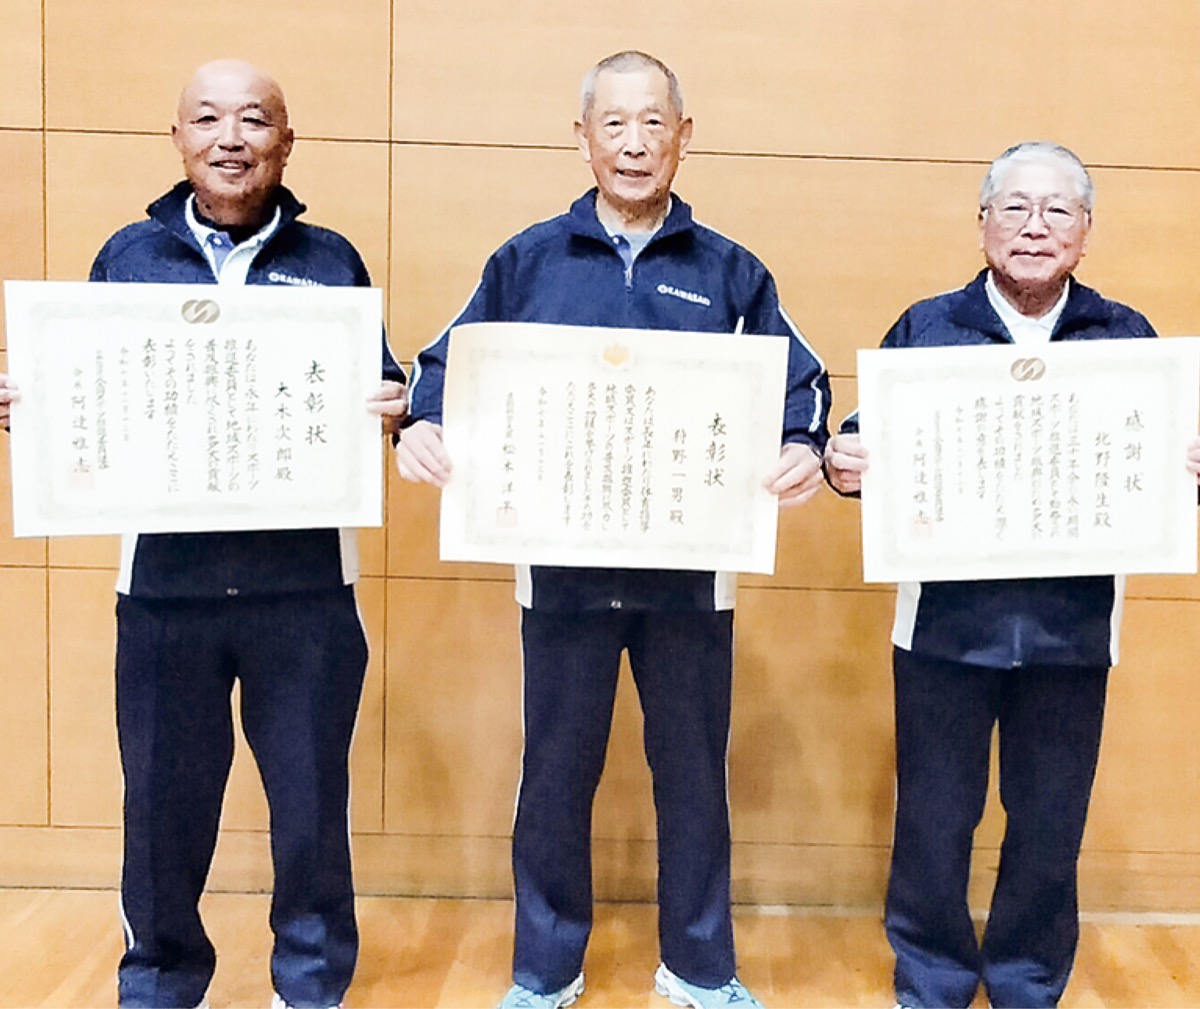 表彰状
大木次郎殿
あなたは永年にわたりスポーツ
推進委員として地域スポーツの
普及振興に尽くされ多大の貢献
をされました
よってその功績をたたえここに
表彰いたします
会長 阿達雅志
KAWASAKI
表彰状
狩野一男殿
あなたは長年にわたり体育指導
委員又はスポーツ推進委員として
地域スポーツの普及振興に尽力し
たたえここにこれを表彰します
松本洋平
KAWASAKI
感謝状
北野隆生殿
あなたは三十年余の永い期間
スポーツ推進委員として勤務され
地域スポーツ振興のため多大の
貢献をされました
よってその功績をたたえ深く
感謝の意を表します
会長 阿達雅志